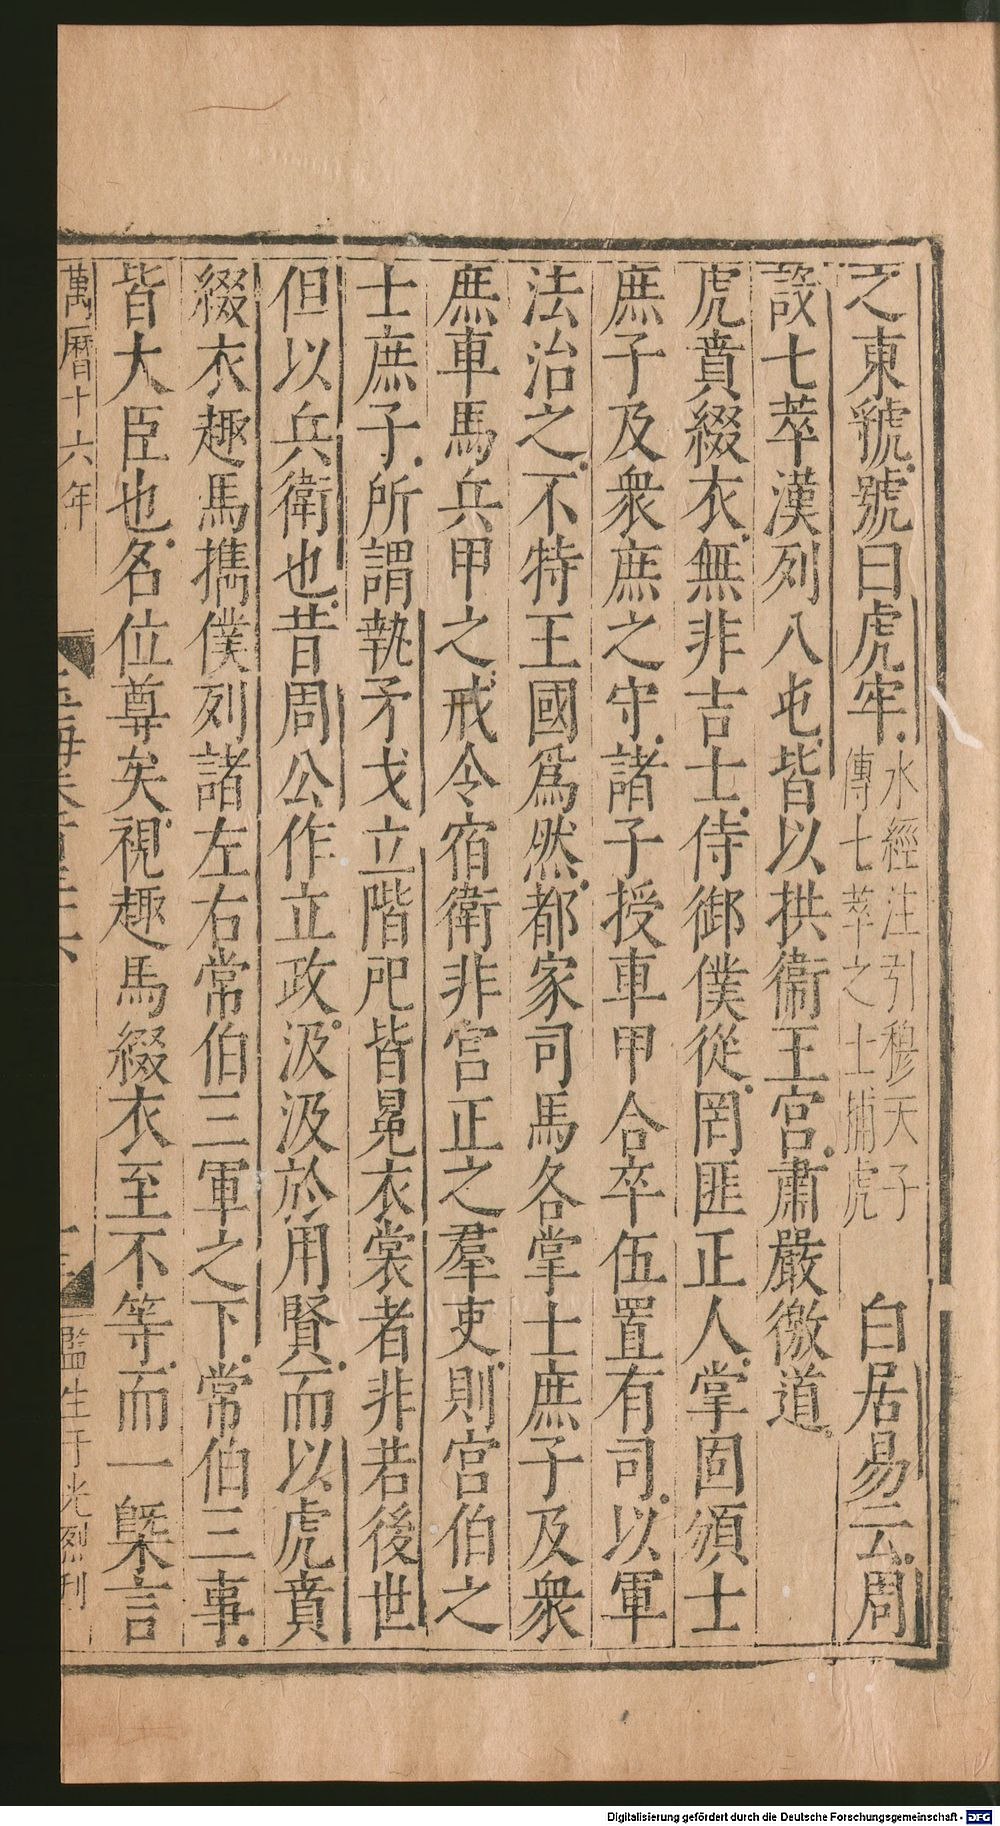 之東虢號曰虎牢水經注引穆天子
傳七萃之士捕虎自居易云周
設七萃漢列八屯皆以拱衛王宮肅嚴徼道
虎賁綴衣無非吉士侍御僕從罔匪正人掌固頒士
庶子及衆庶之守諸子授車甲合卒伍置有司以軍
法治之不特王國爲然都家司馬各掌士庶子及衆
庶車馬兵甲之戒令宿衛非宮正之羣吏則宮伯之
士庶子所謂執矛戈立階戺皆冕衣裳者非若後世
但以兵衛也昔周公作立政汲汲於用賢而以虎賁
綴衣趣馬攜僕列諸左右常伯三軍之下常伯三事
皆大臣也名位尊矣視趣馬綴衣至不等而一槩言
萬曆十六年
監生于光烈刊
Digitalisierung gefördert durch die Deutsche Forschungsgemeinschaft - DFG